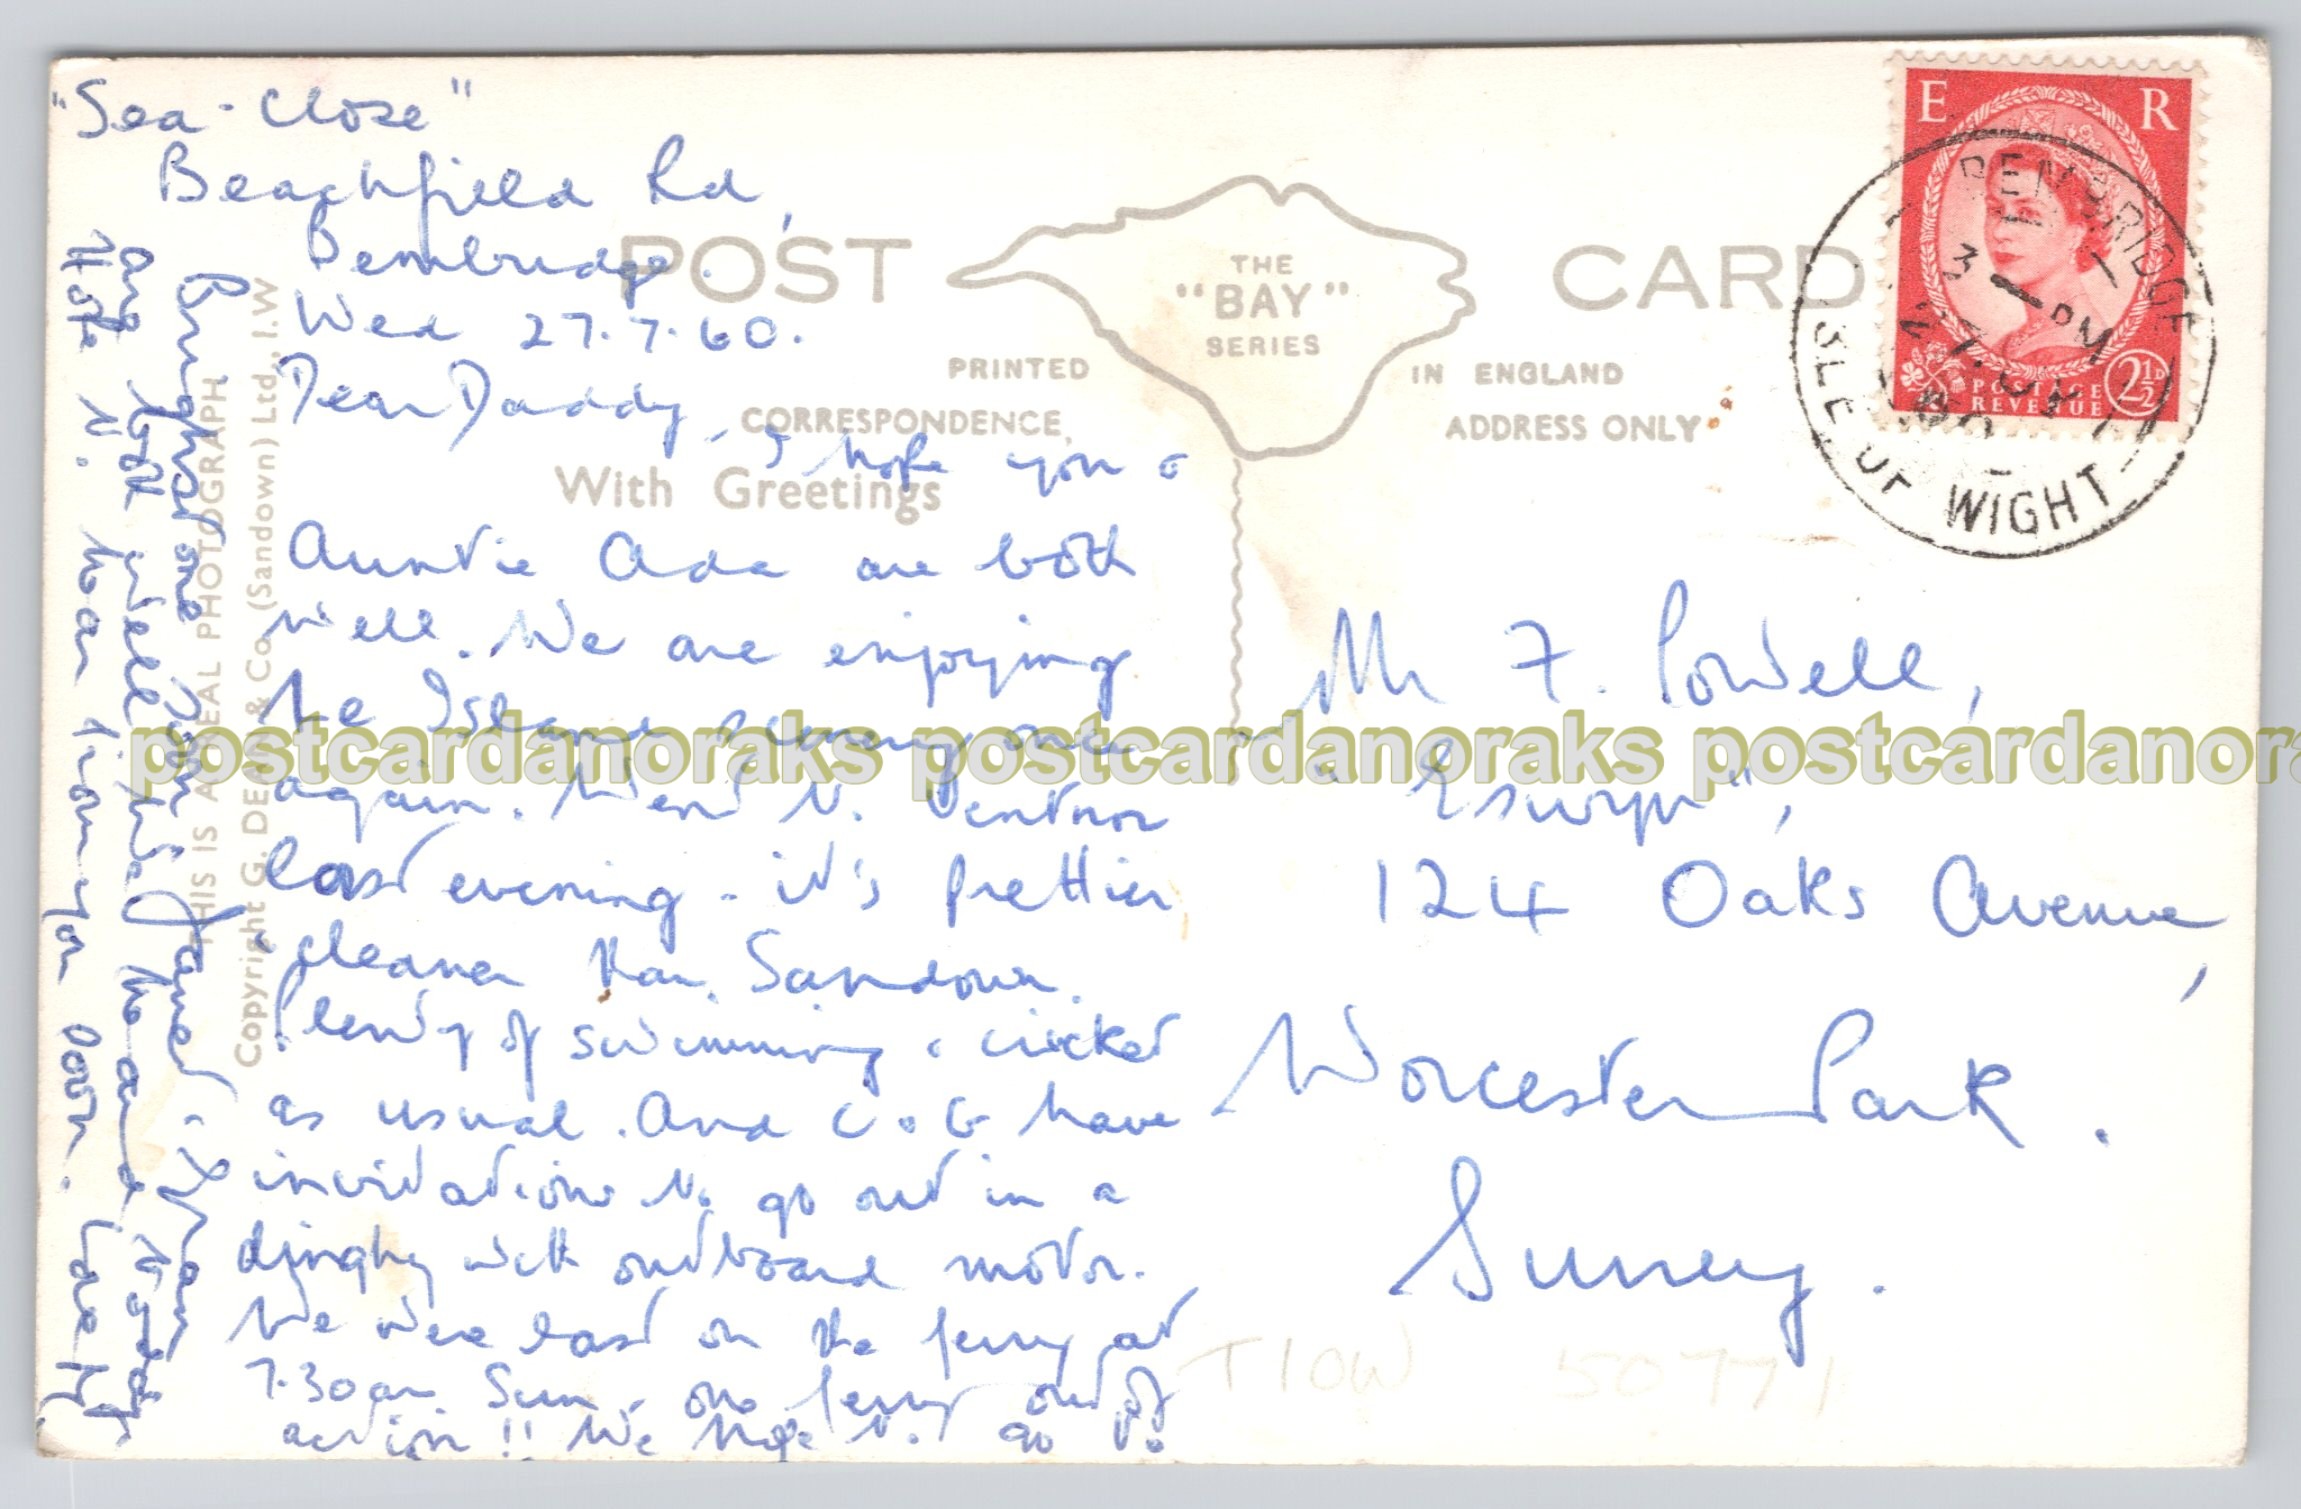 "Sea-Close"
Beachfield Rd,
Bembridge.
Wed 27.7.60.
Dear Daddy,
- I hope you &
Auntie Ada are both
well. We are enjoying
the Island all over
again. Went to Ventnor
last evening - it's prettier
cleaner than Sandown.
Plenty of swimming & cricket
as usual. And C & G have
invitations to go out in a
dinghy with outboard motor.
We were last on the ferry at
7.30am Sun, one ferry out of
action!! We hope to go to
Brighstone
are both well
Hope to hear from you soon.
POST CARD
THE
"BAY"
SERIES
PRINTED IN ENGLAND
CORRESPONDENCE
ADDRESS ONLY
With Greetings
THIS IS A REAL PHOTOGRAPH
Copyright G. DEAN & Co. (Sandown) Ltd., I.W
E R
POSTAGE
REVENUE
2½D
BEMBRIDGE
3 - PM
27
ISLE OF WIGHT
Mr F. Powell,
124 Oaks Avenue,
Worcester Park.
Surrey.
TIOW 50771
postcardanoraks postcardanoraks postcardanora